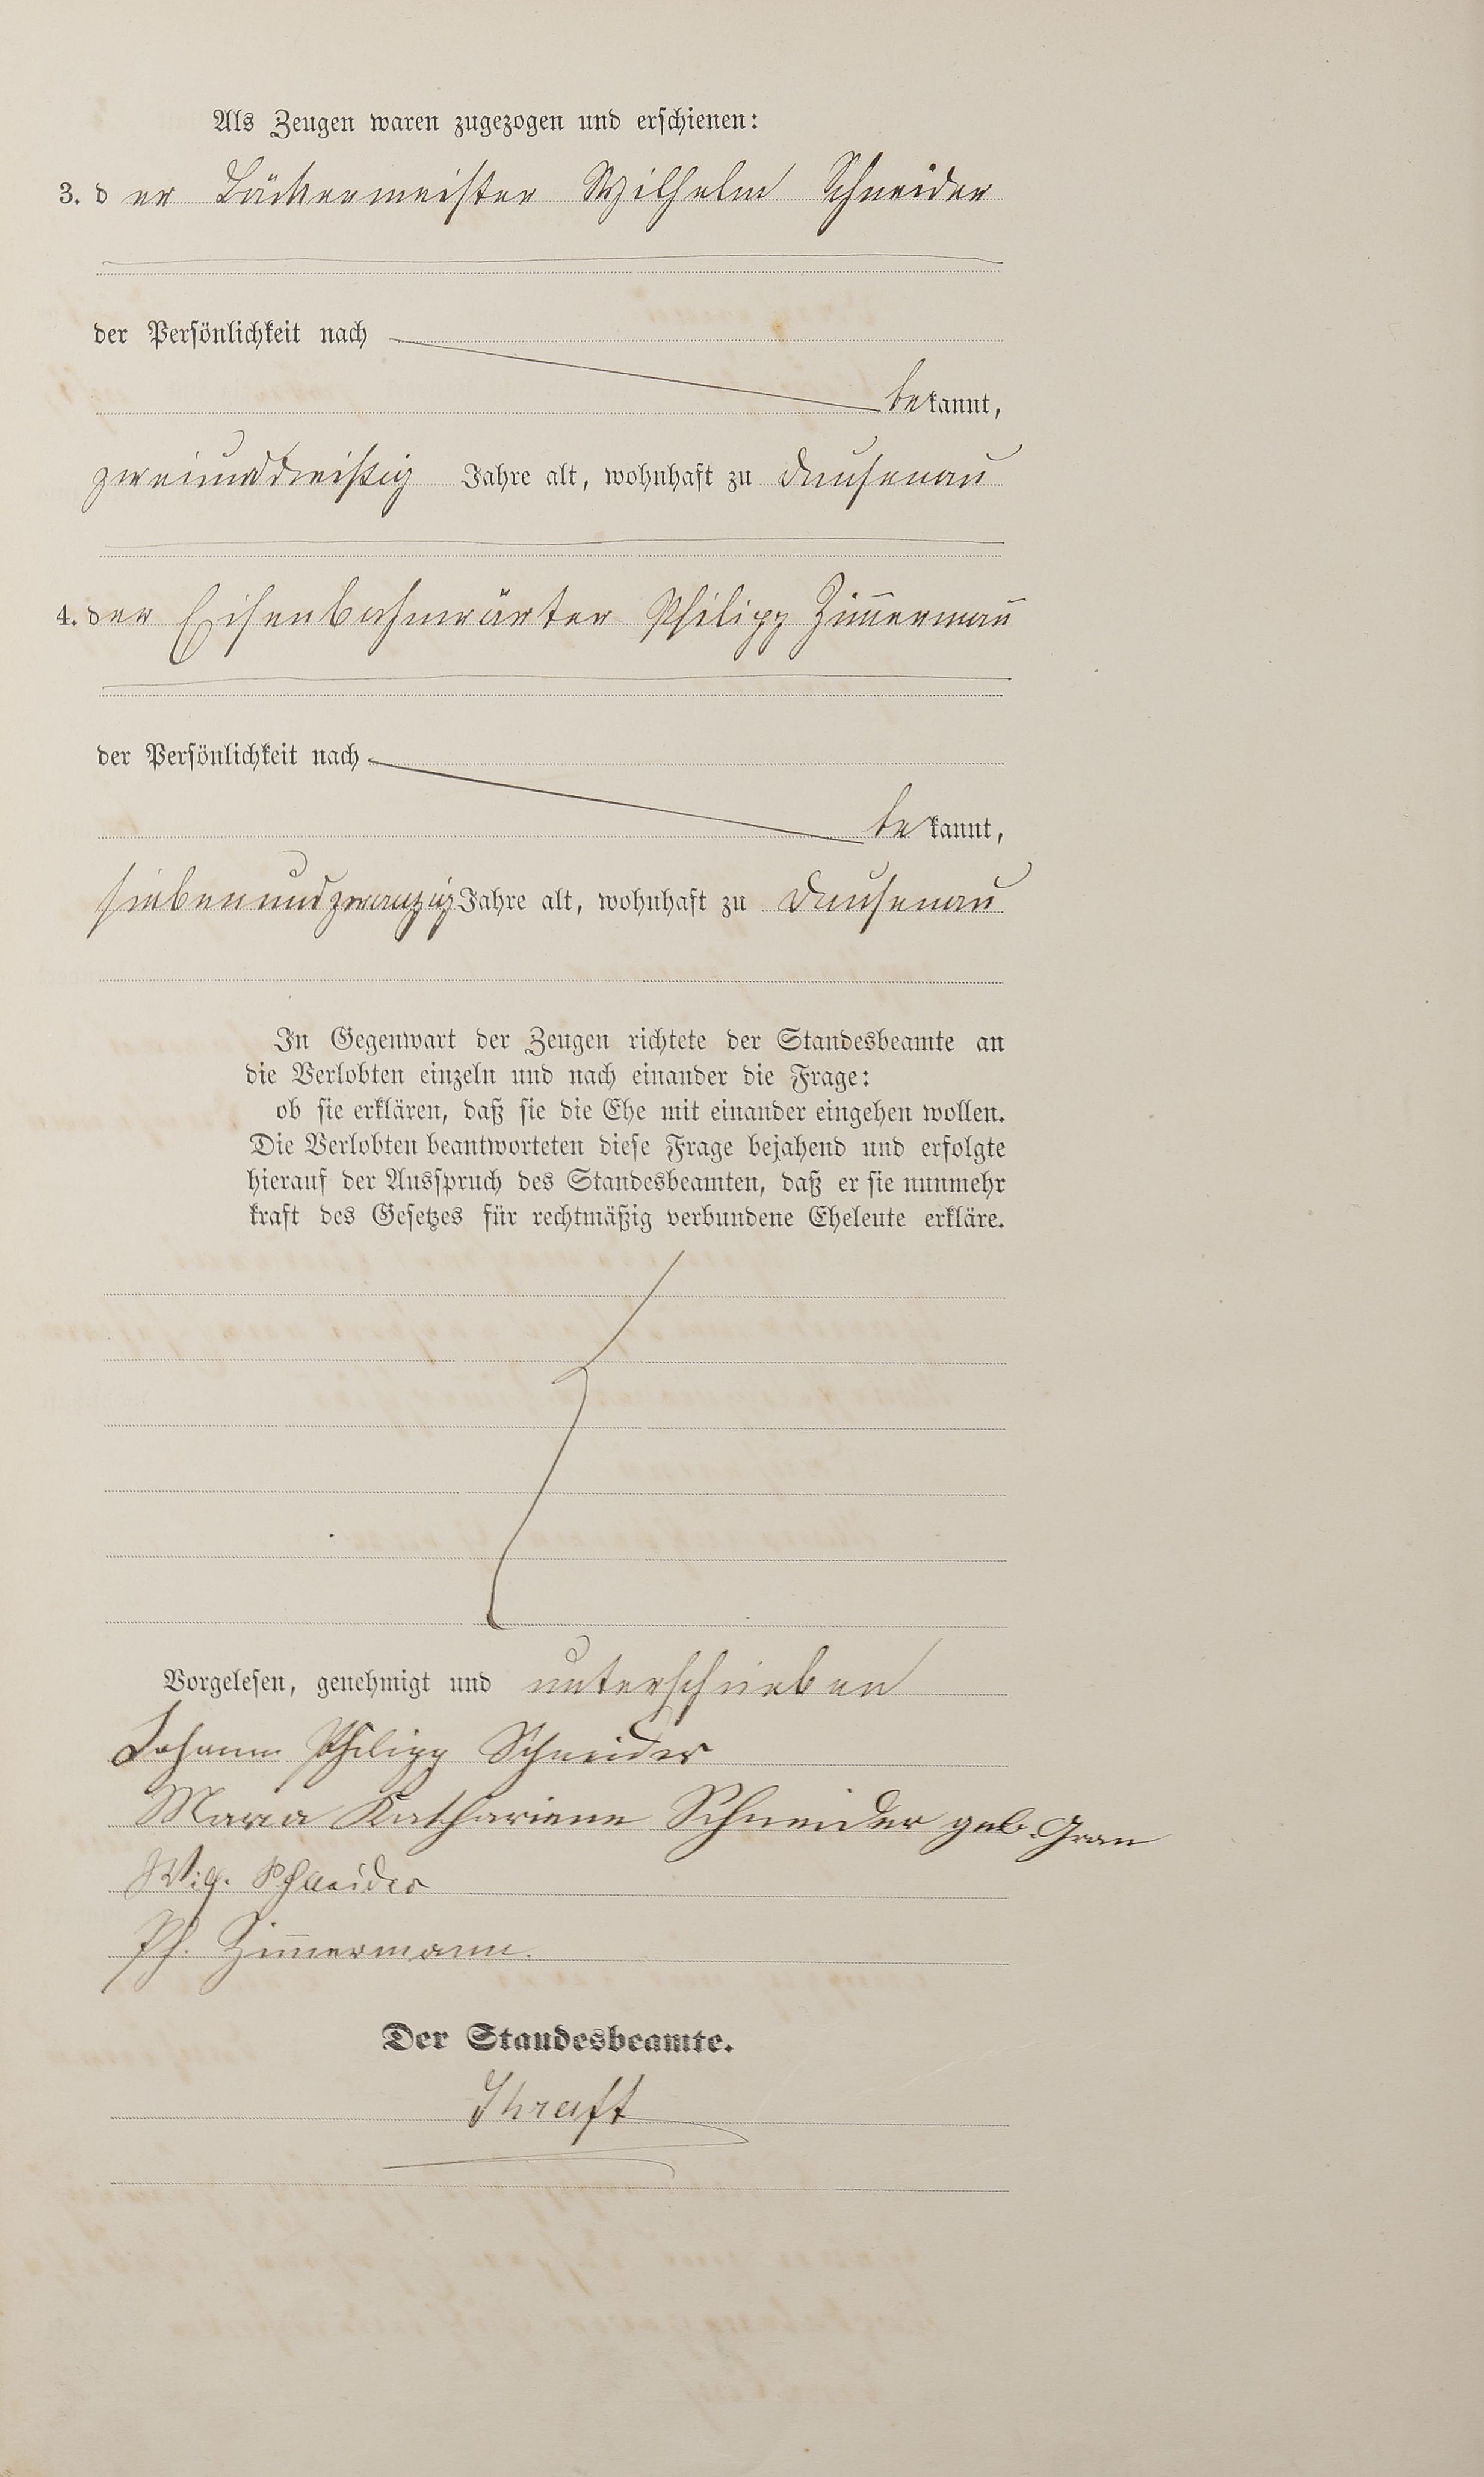 Als Zeugen waren zugezogen und erschienen:
3. der Bäckermeister Wilhelm Schneider
der Persönlichkeit nach
bekannt,
zweiunddreißig Jahre alt, wohnhaft zu Dausenau
4. der Eisenbahnwärter Philipp Zim̄erman̄
der Persönlichkeit nach
bekannt,
siebenundzwanzig Jahre alt, wohnhaft zu Dausenau
In Gegenwart der Zeugen richtete der Standesbeamte an
die Verlobten einzeln und nach einander die Frage:
ob sie erklären, daß sie die Ehe mit einander eingehen wollen.
Die Verlobten beantworteten diese Frage bejahend und erfolgte
hierauf der Ausspruch des Standesbeamten, daß er sie nunmehr
kraft des Gesetzes für rechtmäßig verbundene Eheleute erkläre.
Vorgelesen, genehmigt und unterschrieben
Johann Philipp Schneider
Maria Kathariene Schneider geb.
Wilh. Schneider
Ph. Zim̄ermann.
Der Standesbeamte.